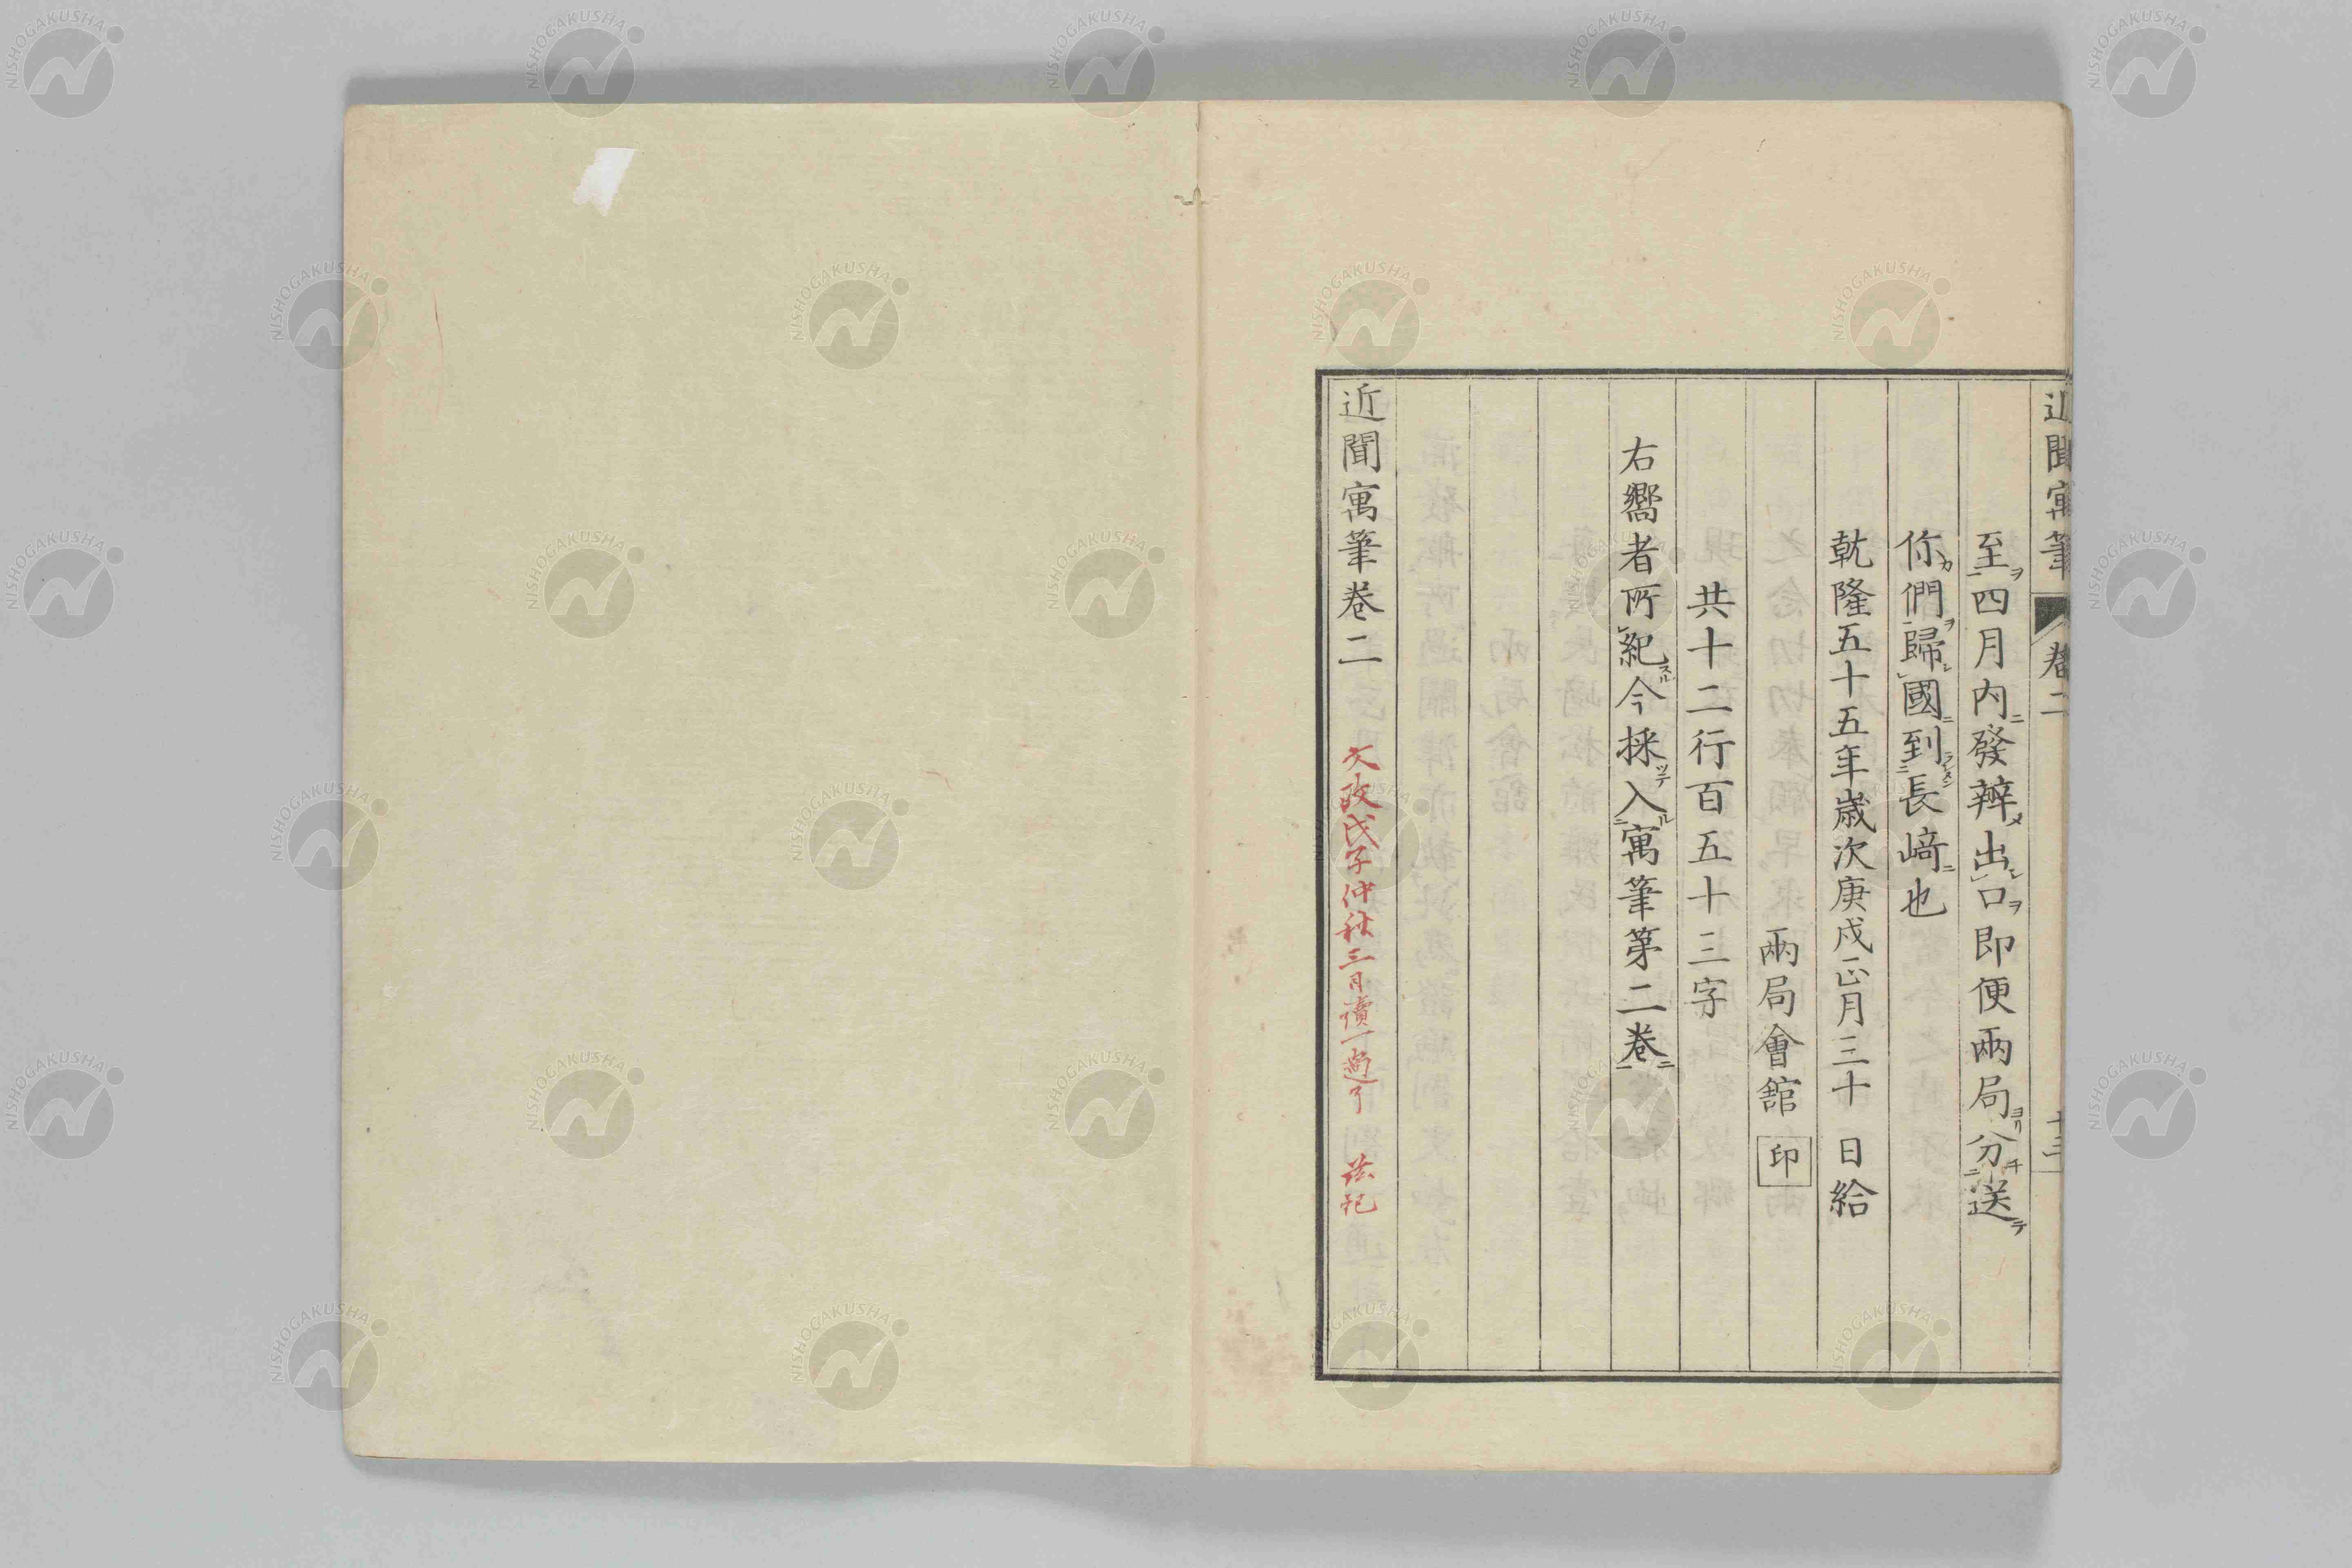 近聞寓筆 卷二 十三
至四月内發辨出口即便兩局分送
你們歸國到長﨑也
乾隆五十五年歳次庚戌正月三十 日給
兩局會舘 印
共十二行百五十三字
右嚮者所紀今採入寓筆第二卷
近聞寓筆卷二
文政戊子仲秋三日讀一過了
NISHOGAKUSHA